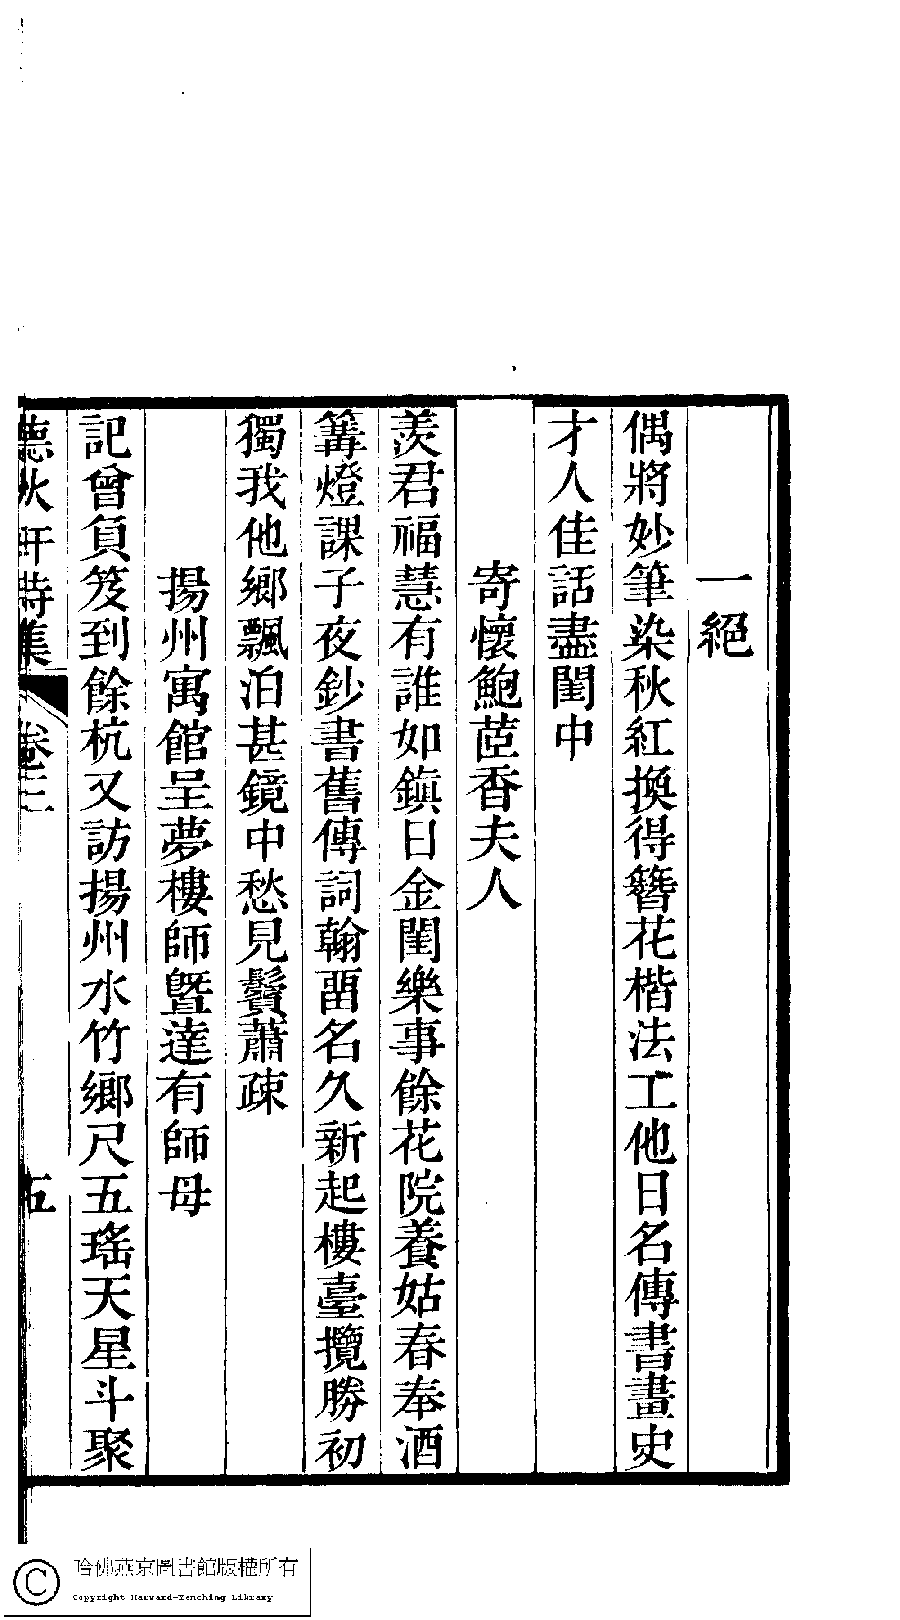 一絕
偶將妙筆染秋紅換得簪花楷法工他日名傳書畫史
才人佳話盡閨中
寄懷鮑茝香夫人
羨君福慧有誰如鎮日金閨樂事餘花院養姑春奉酒
篝燈課子夜鈔書舊傳詞翰畱名久新起樓臺攬勝初
獨我他鄉飄泊甚鏡中愁見鬢蕭疎
揚州寓館呈夢樓師曁達有師母
記曾負笈到餘杭又訪揚州水竹鄉尺五瑤天星斗聚
聽秋軒詩集 卷三 五
哈佛燕京圖書館版權所有
Copyright Harvard-Yenching Library